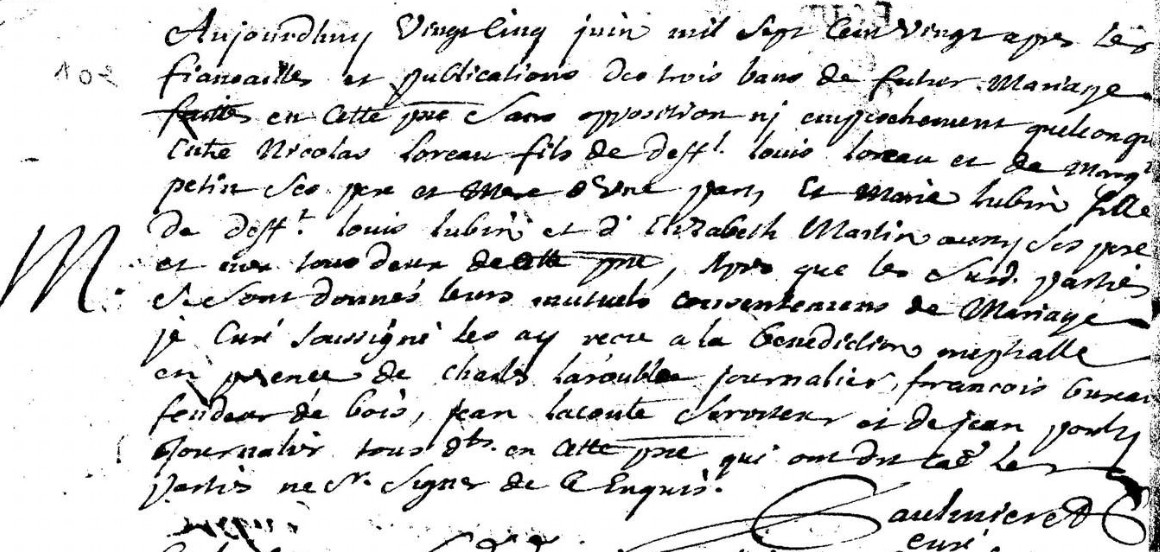 Aujourdhuy Vingt Cinq juin mil sept cent Vingt apres les
fiansailles et publications des trois bans de futur Mariage
faittes en cette psse sans opposition ny empeschement quelconqu
Entre Nicolas Loreau fils de defft. louis Loreau et de Margt
petit ses pere et Mere d'Une part Et Marie Lubin fille
de defft. louis Lubin et d'Elizabeth Martin aussy ses pere
et mere tous deux de cette psse, Apres que les susd. parties
se sont donnés leurs mutuels consentemens de Mariage
je Curé soussigné les ay receu a la benediction nuptialle
en presence de Charles Larouble journalier, françois
fendeur de bois, jean Lacoute et de jean
journalier tous dts. en cette psse qui ont dit les
parties ne sr. signer de ce Enquis.
curé